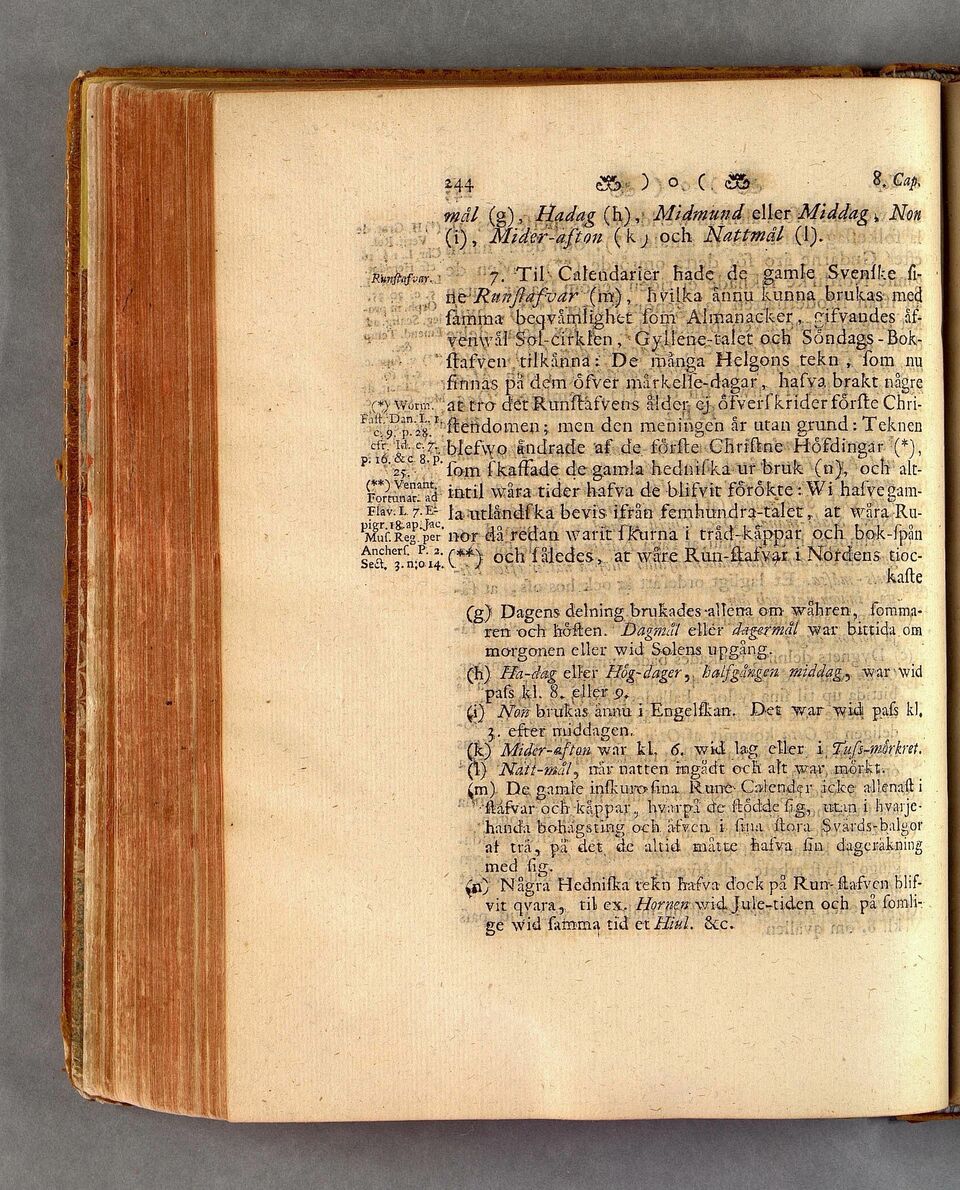 244 ) o ( 8. Cap.
mål (g), Hadag (h), Midmund eller Middag, Non
(i), Mider-afton (k) och Nattmål (l).
Runſtafvar.
7. Til Calendarier hade de gamle Svenſke ſi-
ne Runſtafvar (m), hvilka ånnu kunna brukas med
ſamma beqvåmlighet ſom Almanacker, gifvandes åf-
venwål Sol-cirklen, Gyllene-talet och Sŏndags-Bok-
ſtafven tilkånna: De många Helgons tekn, ſom nu
finnas på dem ŏfver mårkelſe-dagar, hafva brakt någre
at tro det Runſtafvens ålder ej ŏfverſkrider fŏrſte Chri-
ſtendomen; men den meningen år utan grund: Teknen
blefwo åndrade af de fŏrſte Chriſtne Hŏfdingar (*),
ſom ſkaffade de gamla hedniſka ur bruk (n), och alt-
intil wåra tider hafva de blifvit fŏrŏkte: Wi hafve gam-
la utlåndſka bevis ifrån femhundra-talet, at wåra Ru-
nor då redan warit ſkurna i tråd-kåppar och bok-ſpån
(**) och ſåledes, at wåre Run-ſtafvar i Nordens tiock-
kaſte
(*) Worm.
Faſt. Dan. L. 1.
c. 9. p. 28.
cfr. Id. c. 7.
p. 16. &c 8. p.
25.
(**) Venant.
Fortunat. ad
Flav. L. 7. E-
pigr. 18. ap. Jac.
Muſ. Reg. per
Ancherſ. P. 2.
Sect. 3. n:o 14.
(g) Dagens delning brukades allena om wåhren, ſomma-
ren och hŏſten. Dagmål eller dagermål war bittida om
morgonen eller wid Solens upgång.
(h) Ha-dag eller Hŏg-dager, halfgången middag, war wid
paſs kl. 8. eller 9.
(i) Non brukas ånnu i Engelſkan. Det war wid paſs kl.
3. efter middagen.
(k) Mider-afton war kl. 6. wid lag eller i Tuſs-mŏrkret.
(l) Natt-mål, når natten ingådt och alt war mŏrkt.
(m) De gamle inſkuro ſina Rune Calender icke allenaſt i
ſtafvar och kåppar, hvarpå de ſtŏdde ſig, utan i hvarje-
handa bohagsting och åfven i ſina ſtora Svårds-balgor
af trå, på det de altid måtte hafva ſin dageråkning
med ſig.
(n) Några Hedniſka tekn hafva dock på Run-ſtafven blif-
vit qvara, til ex. Hornen wid Jule-tiden och på ſomli-
ge wid ſamma tid et Hiul. &c.